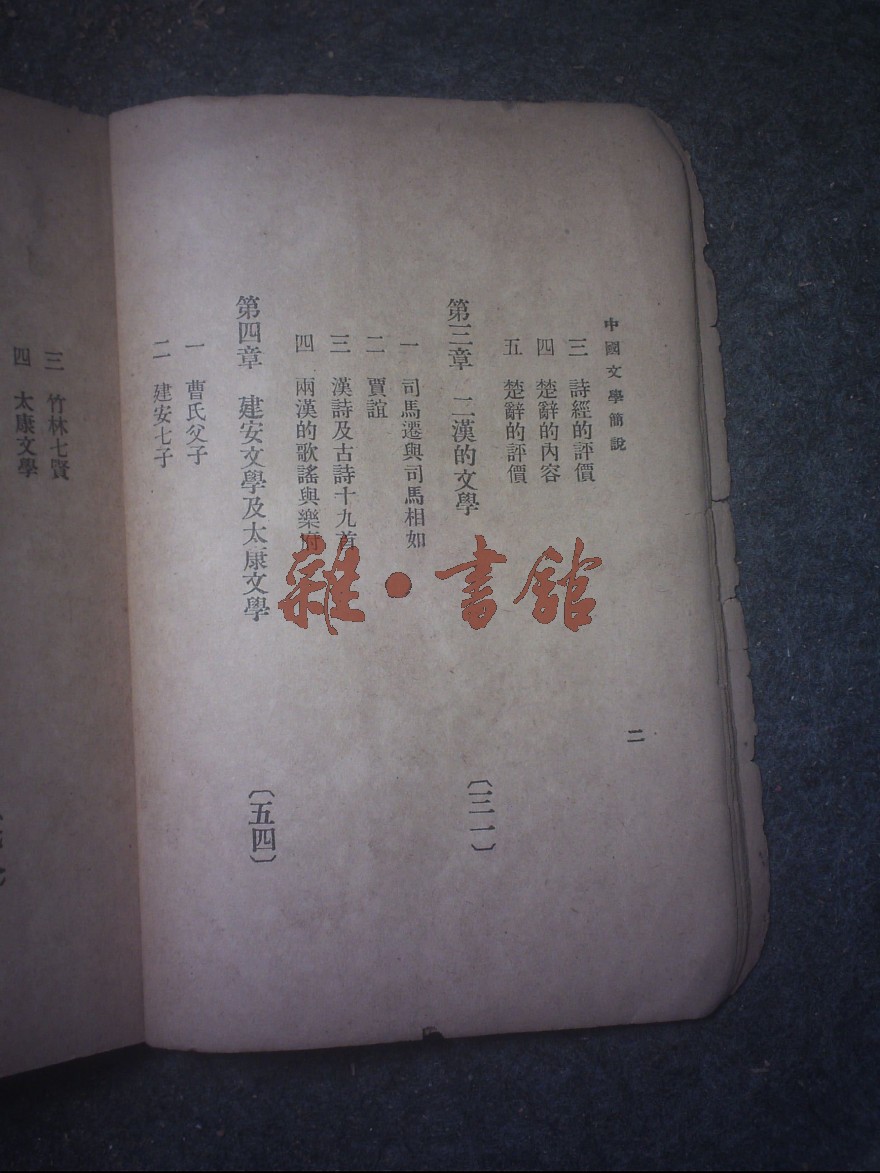 中國文學簡說
二
三 詩經的評價
四 楚辭的內容
五 楚辭的評價
第三章 二漢的文學 〔三一〕
一 司馬遷與司馬相如
二 賈誼
三 漢詩及古詩十九首
四 兩漢的歌謠與樂府
第四章 建安文學及太康文學 〔五四〕
一 曹氏父子
二 建安七子
三 竹林七賢
四 太康文學
雜·書館